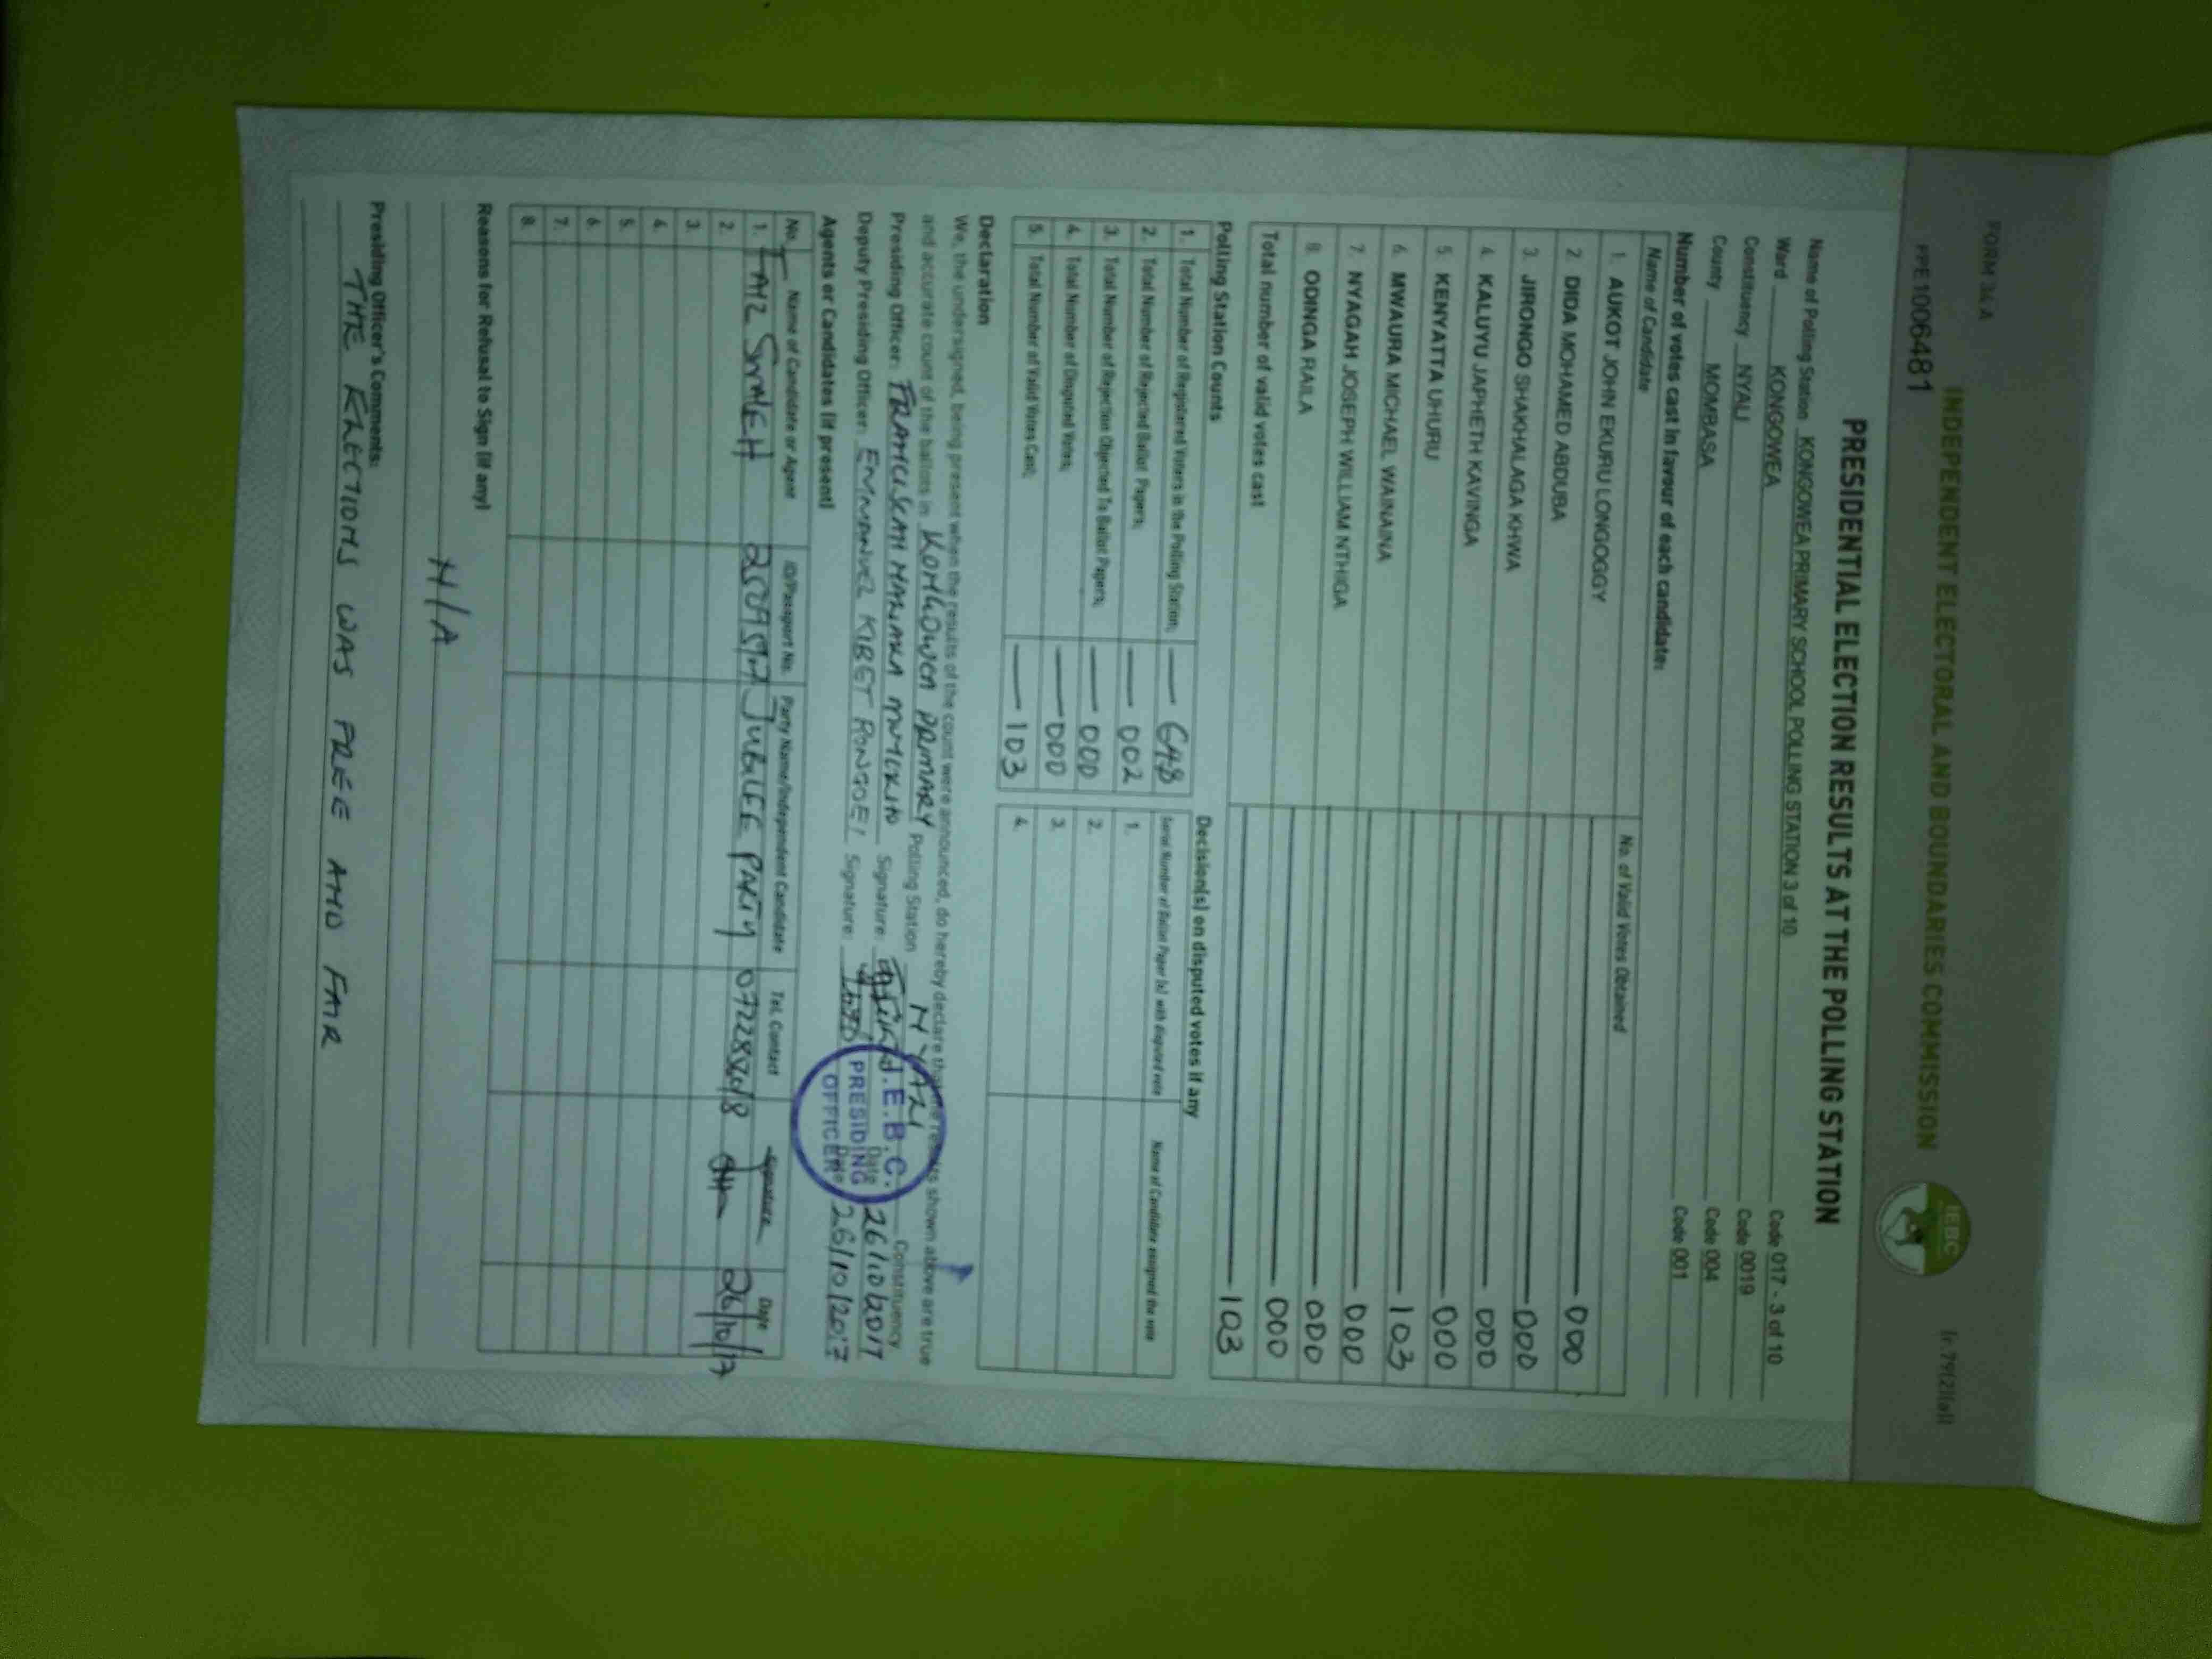 FORM 34 A
INDEPENDENT ELECTORAL AND BOUNDARIES COMMISSION
IEBC
(r.79(2)(a))
PPE1006481
PRESIDENTIAL ELECTION RESULTS AT THE POLLING STATION
Name of Polling Station KONGOWEA PRIMARY SCHOOL POLLING STATION 3 of 10 Code 017 - 3 of 10
Ward KONGOWEA Code 0019
Constituency NYALI Code 004
County MOMBASA Code 001
Number of votes cast in favour of each candidate:
Name of Candidate No. of Valid Votes Obtained
1. AUKOT JOHN EKURU LONGOGGY 000
2. DIDA MOHAMED ABDUBA 000
3. JIRONGO SHAKHALAGA KHWA 000
4. KALUYU JAPHETH KAVINGA 000
5. KENYATTA UHURU 103
6. MWAURA MICHAEL WAINAINA 000
7. NYAGAH JOSEPH WILLIAM NTHIGA 000
8. ODINGA RAILA 000
Total number of valid votes cast 103
Polling Station Counts
1. Total Number of Registered Voters in the Polling Station; 648
2. Total Number of Rejected Ballot Papers; 002
3. Total Number of Rejection Objected To Ballot Papers; 000
4. Total Number of Disputed Votes; 000
5. Total Number of Valid Votes Cast; 103
Decision(s) on disputed votes if any
Serial Number of Ballot Paper (s) with disputed vote Name of Candidate assigned the vote
1.
2.
3.
4.
Declaration
We, the undersigned, being present when the results of the count were announced, do hereby declare that the results shown above are true
and accurate count of the ballots in KONGOWEA PRIMARY Polling Station NYALI Constituency
Presiding Officer: Signature: Date 26/10/2017
Deputy Presiding Officer: EMMANUEL KIBET RONGOEI Signature: Date 26/10/2017
I.E.B.C.
PRESIDING
OFFICER
Agents or Candidates (if present)
No. Name of Candidate or Agent ID/Passport No. Party Name/Independent Candidate Tel. Contact Signature Date
1. JUBILEE PARTY 26/10/17
2.
3.
4.
5.
6.
7.
8.
Reasons for Refusal to Sign (if any)
N/A
Presiding Officer's Comments:
THE ELECTIONS WAS FREE AND FAIR